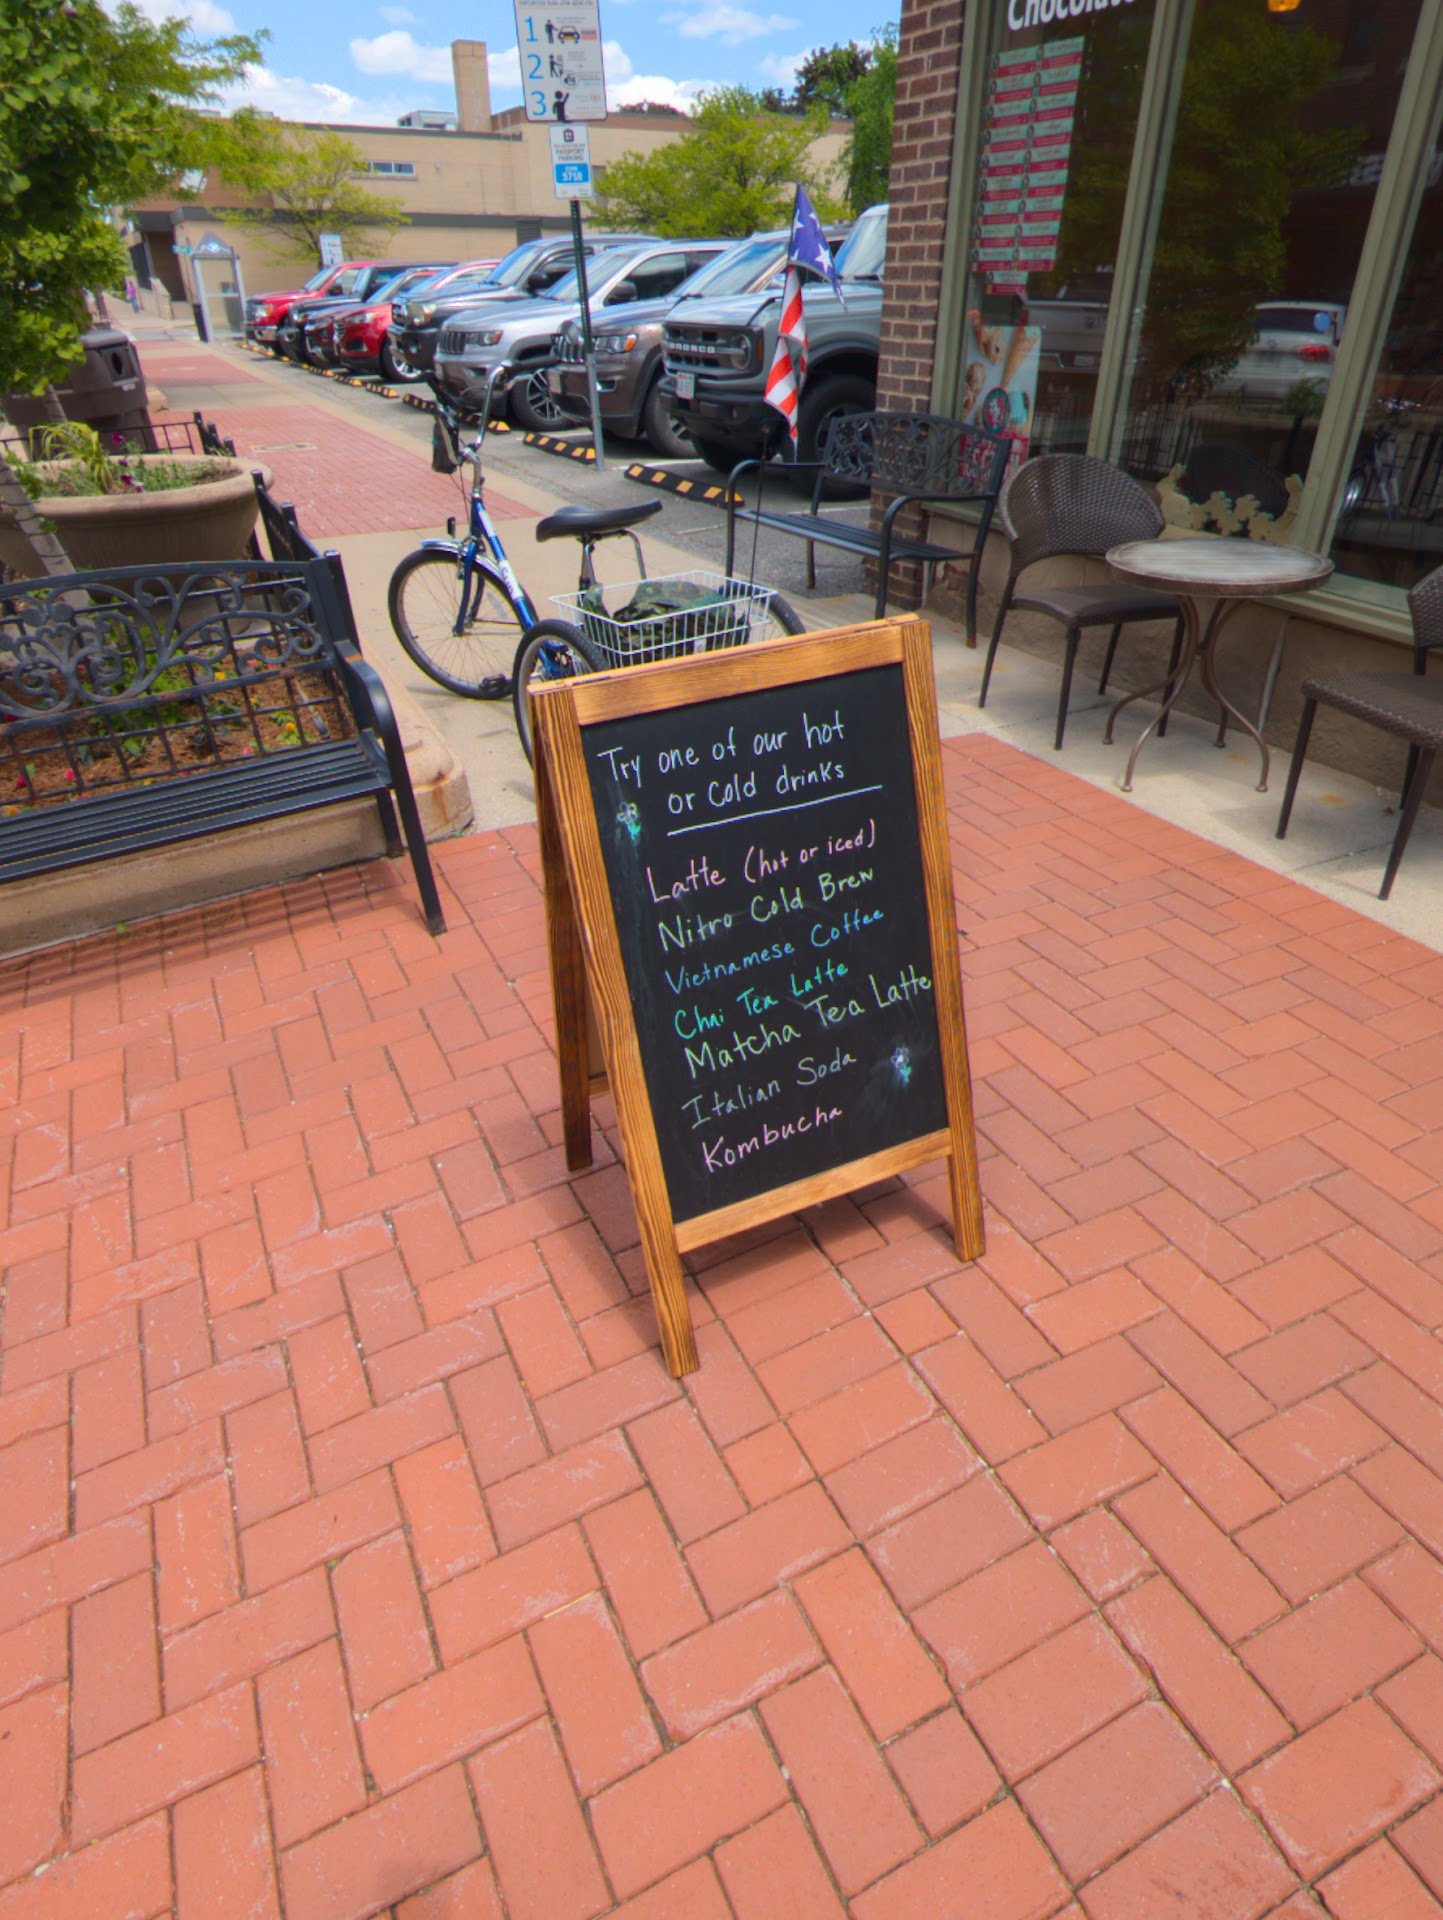 1
2
3
PASSPORT
PARKING
ZONE
5718
Chocolate
BRONCO
Try one of our hot
or cold drinks
Latte (hot or iced)
Nitro Cold Brew
Vietnamese Coffee
Chai Tea Latte
Matcha Tea Latte
Italian Soda
Kombucha